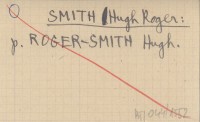 SMITH Hugh Roger:
p. ROGER-SMITH Hugh.